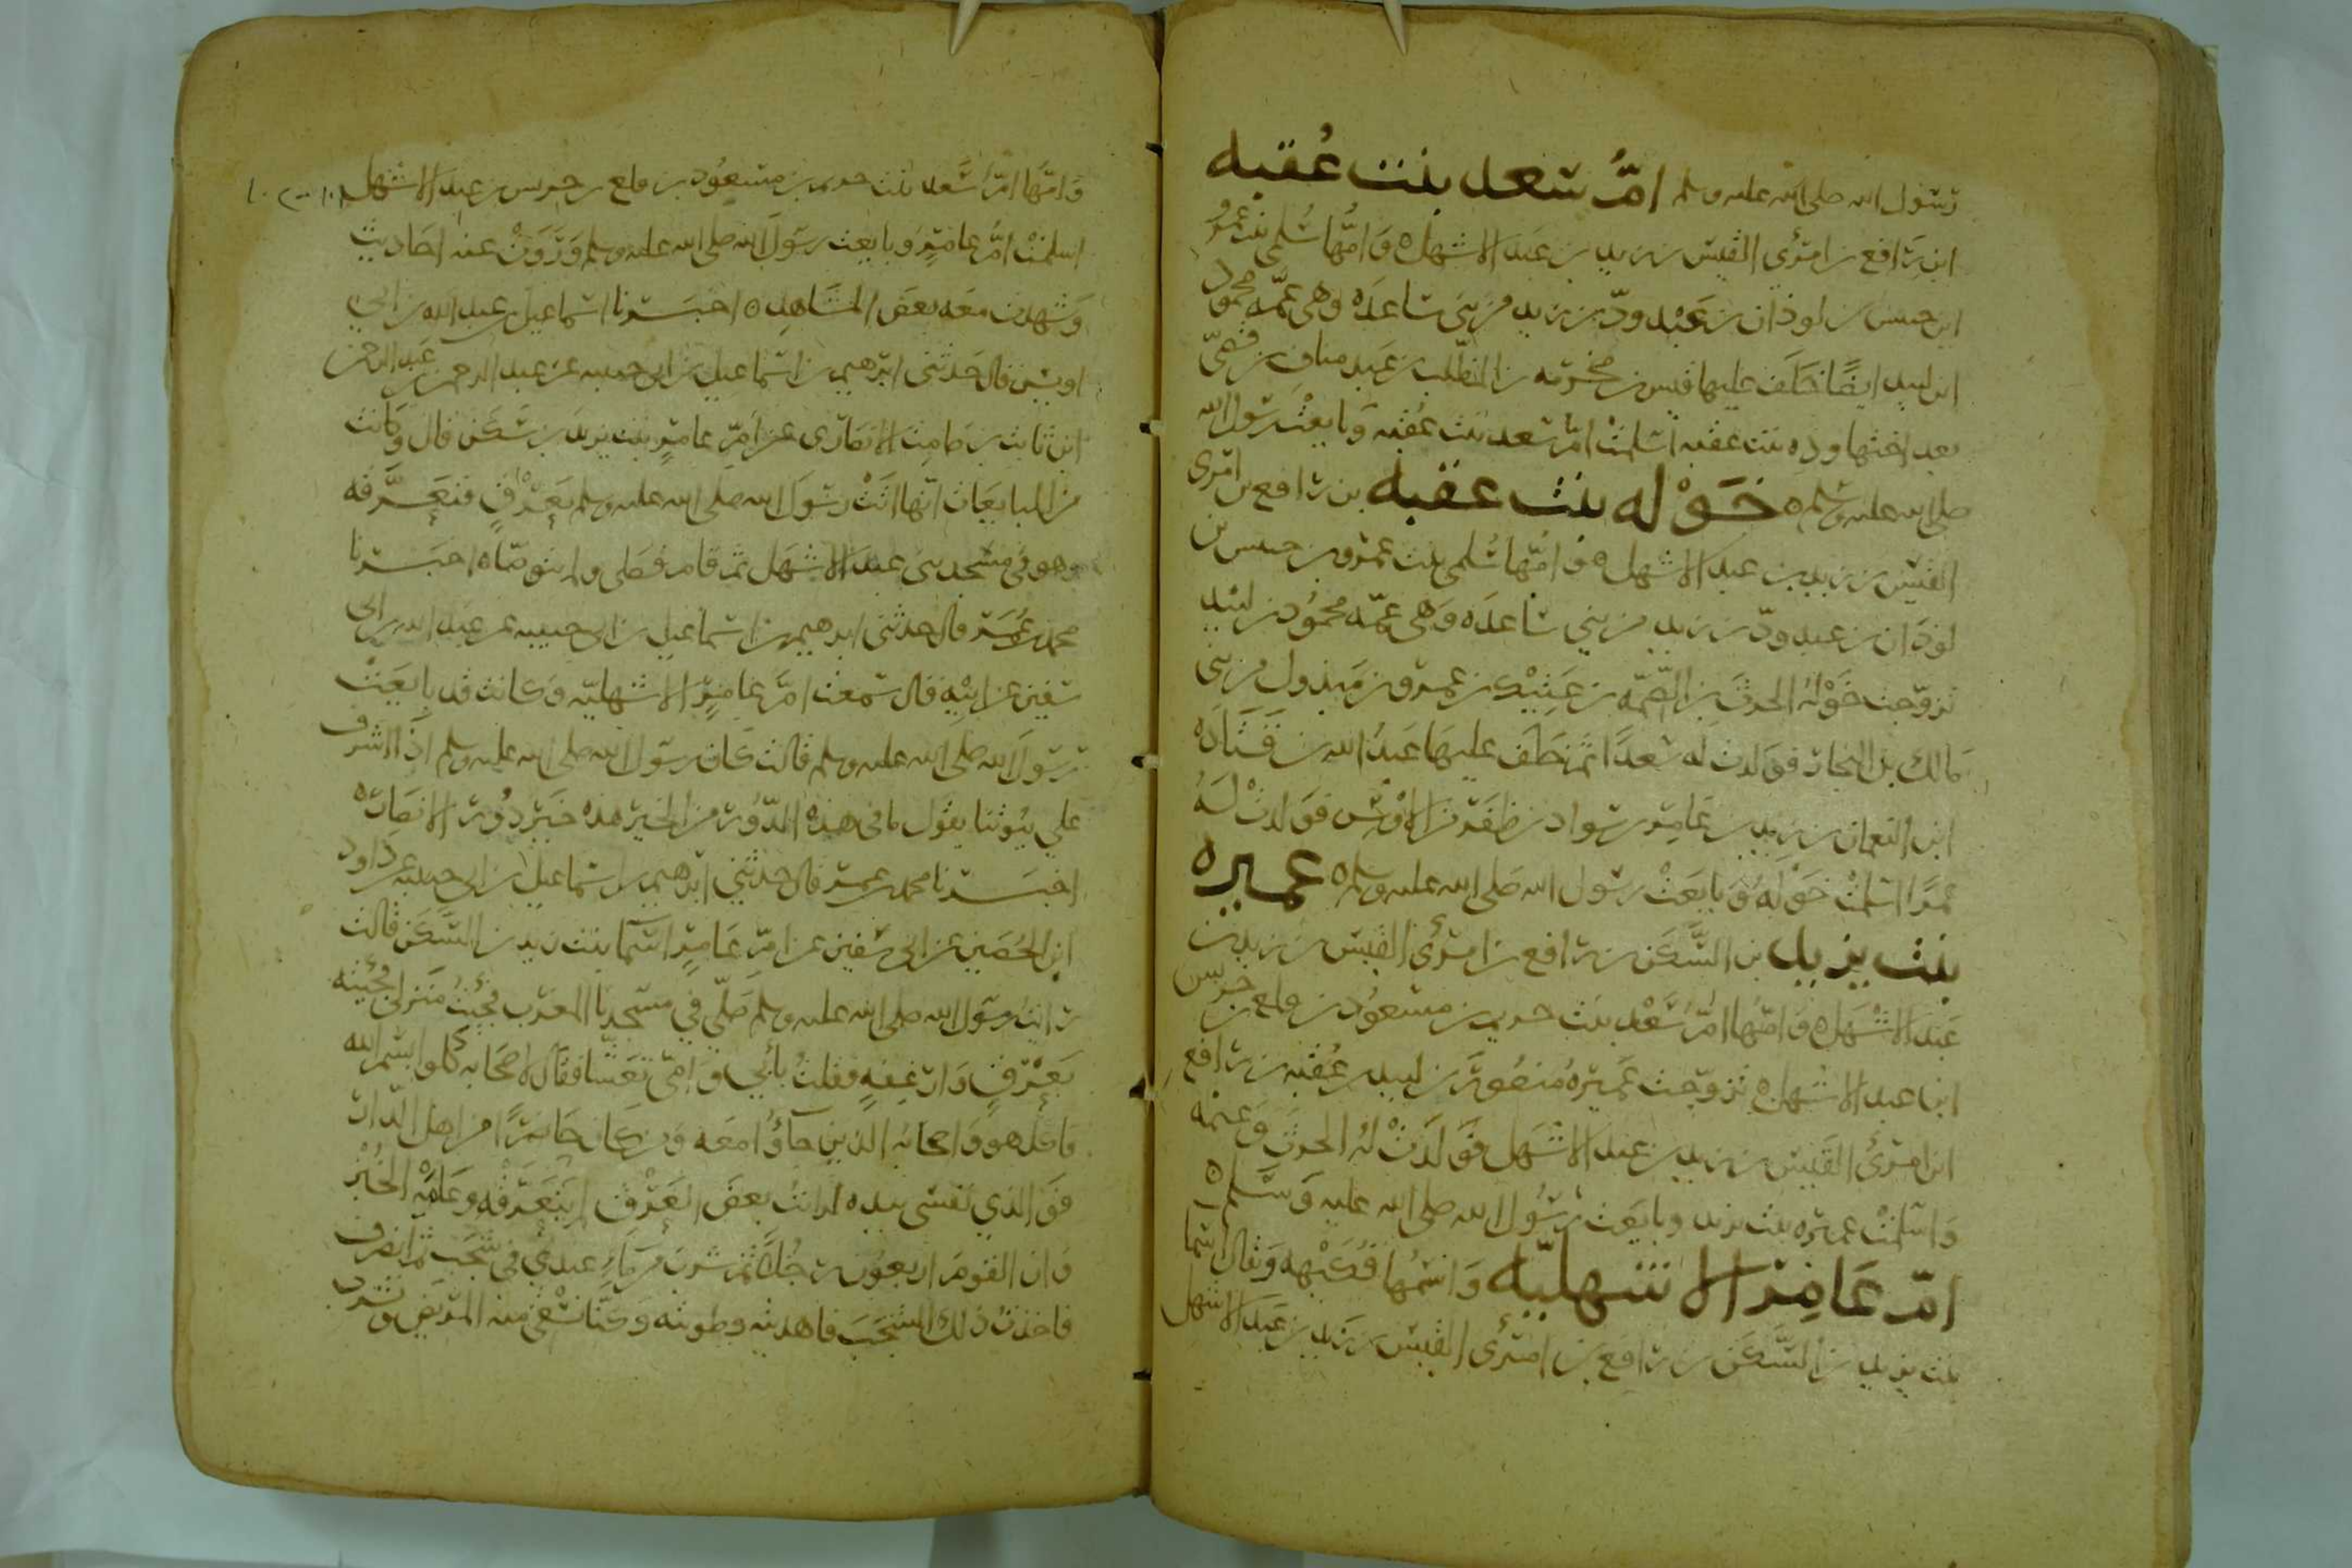 رسول الله صلى الله عليه وسلم امّ سعد بنت عُقبه
ابن رافع بن امرئ القيس بن زيد بن عبد الاشهل ٥ وامّها سُلمى بنت عمرو
ابن حبيس بن لوذان بن عَبْد ودّ بن زيد من بني ساعدَه وهى عمّه محمود
ابن لبيد ايضًا خلَف عليها قيس بن مخرمه بن المطّلب بن عَبد مناف بن قصيّ
بعد اختها وده بنت عقبه اسْلمَتْ امّ سعد بنت عقبه وَبايعَتْ رسول الله
صلى الله عليه وسلم ٥ خَوْله بنت عقبه بن رافع بن امرى
القيس بن زيد بن عبد الاشهل ٥ وَامّها سُلمى بنت عمرو بن حبيس بن
لوذان بن عبد ودّ بن زيد من بني ساعدَه وَهى عمّه محمُود بن لبيد
تزوّجت خَوْلهُ الحرثَ بن الصّمّه بن عَتِيْك بن عمرو بن مَبذول من بنى
مالك بن النجار فوَلدت له سَعدًا ثم خلَف عليهَا عَبدُ الله بن قَتَادَه
ابن النعمان بن زيد بن عَامِر بن سواد بن ظفَر من الاوْس فوَلدتْ لَهُ
عَمرًا اسْلمتْ خَوْله وَبايعَتْ رسول الله صَلى الله عليه وسلم ٥ عميره
بنت يزيد بن السَّكَن بن رافع بن امرئ القيس بن زيد بن
عَبد الاشْهَل ٥ وَامّها امّ سَعْد بنت حديم بن مسعوُد بن ملع بن حريس
ابن عبد الاشهل ٥ تزوّجت عَميرَهُ منصور بن لبيد بن عُقبه بن رافع
ابن امرئ القَيس بن زيد بن عَبد الاشْهَل فوَلدَتْ لهُ الحرثَ وَعتمه
وَاسْلمتْ عميره بنت يزيد وبايعَت رسُول الله صلى الله عليه وَسَلم ٥
امّ عَامِر الاشهليّه وَاسْمُها فُكَيْهه وَيقال اسْما
بنت يزيد بن السَّكَن بن رافع بن امرئ القيس بن زيد بن عَبد الاشهل
وَامّها امّ سَعد بنت حديم بن مسعوُد بن ملع بن حريس بن عبد الاشهل
اسلمتْ امّ عَامِر وَبايعت رسول الله صلى الله عليه وسلم وَرَوَتْ عنه احاديث
وَشهدت معَه بعض المشاهِد ٥ اخبَرنا اسماعيل بن عبد الله بن ابي
اويس قال حَدثنى ابرهيم بن اسماعيل بن ابى حبيبه عن عبد الرحمن بن عَبد الرحمن
ابن ثابت بن صَامِت الانصَاري عن امّ عامر بنت يزيد بن سَكَن قال وَكانت
من المبايعَات انّها اتَتْ رسُولَ الله صلى الله عليه وسلم بعَرْقٍ فتعَرَّقه
وهو فى مسْجد بنى عبد الاشهَل ثم قام فصَلى ولم يتوضّا ٥ اخبَرنا
محمد بن عُمَر قال حدثنى ابرهيم بن اسماعيل بن ابى حبيبه عن عبد الله بن ابى
سفين عن ابيْهِ قال سمعت امّ عامر الاشهليّه وَكانت قد بايعَتْ
رسُولَ الله صلى الله عليه وسلم قالت كان رسُول الله صلى الله عليه وسلم اذا اشرف
على بيُوتنا يقول ما فى هذه الدّور من الخير هذه خَير دُور الانصَار ٥
اخبَرنا محمد بن عُمر قال حدثني ابرهيم بن اسماعيل بن ابى حبيبه عن داود
ابن الحُصَين عن ابى سفين عن امّ عَامِر اسمآ بنت يزيد بن السّكَن قالت
رايت رسُول الله صلى الله عليه وسلم صَلّى في مسجدنا المغرب فجئتُ منزلى فجئته
بعَرْقٍ وَارغفهٍ فقلتُ بأبي وَامّي تعَشّا فقال لاصحَابه كلوا بسْم الله
فاكل هو وَاصحابُه الذين جآؤا معَه وَمن كان حَاضرًا من اهل الدّار
فوَ الذي نفسى بيده لرايتُ بعض العَرْق لم يتَعَرّقه وعَامّه الخُبْز
وَان القومَ اربعوُن رجُلًا ثم شربَ من مَاءٍ عندي فى شَجْب ثم انصَرف
فاخذتُ ذلك الشجْبَ فدهنته وطويته وكنّا نسْقي منه المريض ونشرب